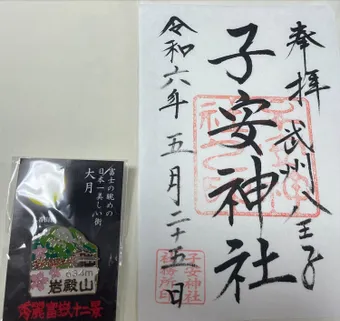 奉拝 武州八王子
子安神社
令和六年 五月二十五日
子安神社
社務所印
富士の眺めの
日本一美しい街
大月
634m
岩殿山
秀麗富嶽十二景